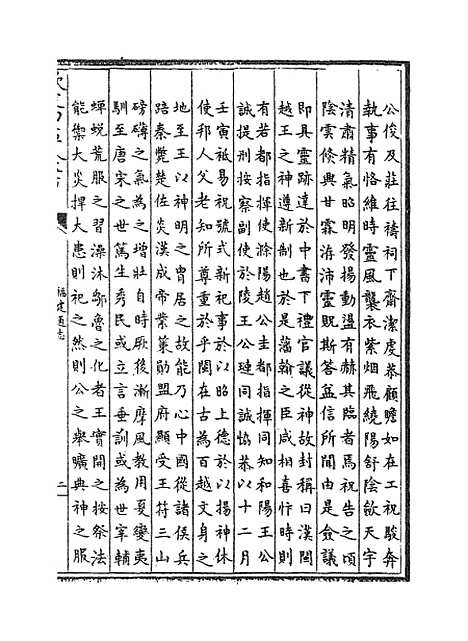 公俊及莊往禱祠下齋潔虔恭顧瞻如在工祝駿奔
執事有恪維時靈風襲衣紫烟飛繞陽舒陰歛天宇
清肅精氣昭明發揚動盪有赫其臨者焉祝告之頃
陰雲倐興甘霖洊沛靈貺斯答葢信所聞由是僉議
即具靈跡達於中書下禮官議從神故封稱曰漢閩
越王之神遵新制也於是藩翰之臣咸相喜忭時則
有若都指揮使滁陽趙公圭都指揮同知和陽王公
誠提刑按察副使於陵王公璉同誠協恭以十二月
壬寅祗易祝號式新祀事於以昭上德於以揚神休
使邦人父老知所尊重於乎閩在古為百越文身之
地至王以神明之胄居之故能乃心中國從諸侯兵
踣秦斃楚佐炎漢成帝業策勛盟府顯受王符三山
磅礴之氣為之增壯自時厥後漸摩風教用夏變夷
馴至唐宋之世篤生秀民或立言垂訓或為世宰輔
蟬蛻荒服之習澡沐鄒魯之化者王實開之按祭法
能禦大災捍大患則祀之然則公之舉曠典神之服
福建通志
二